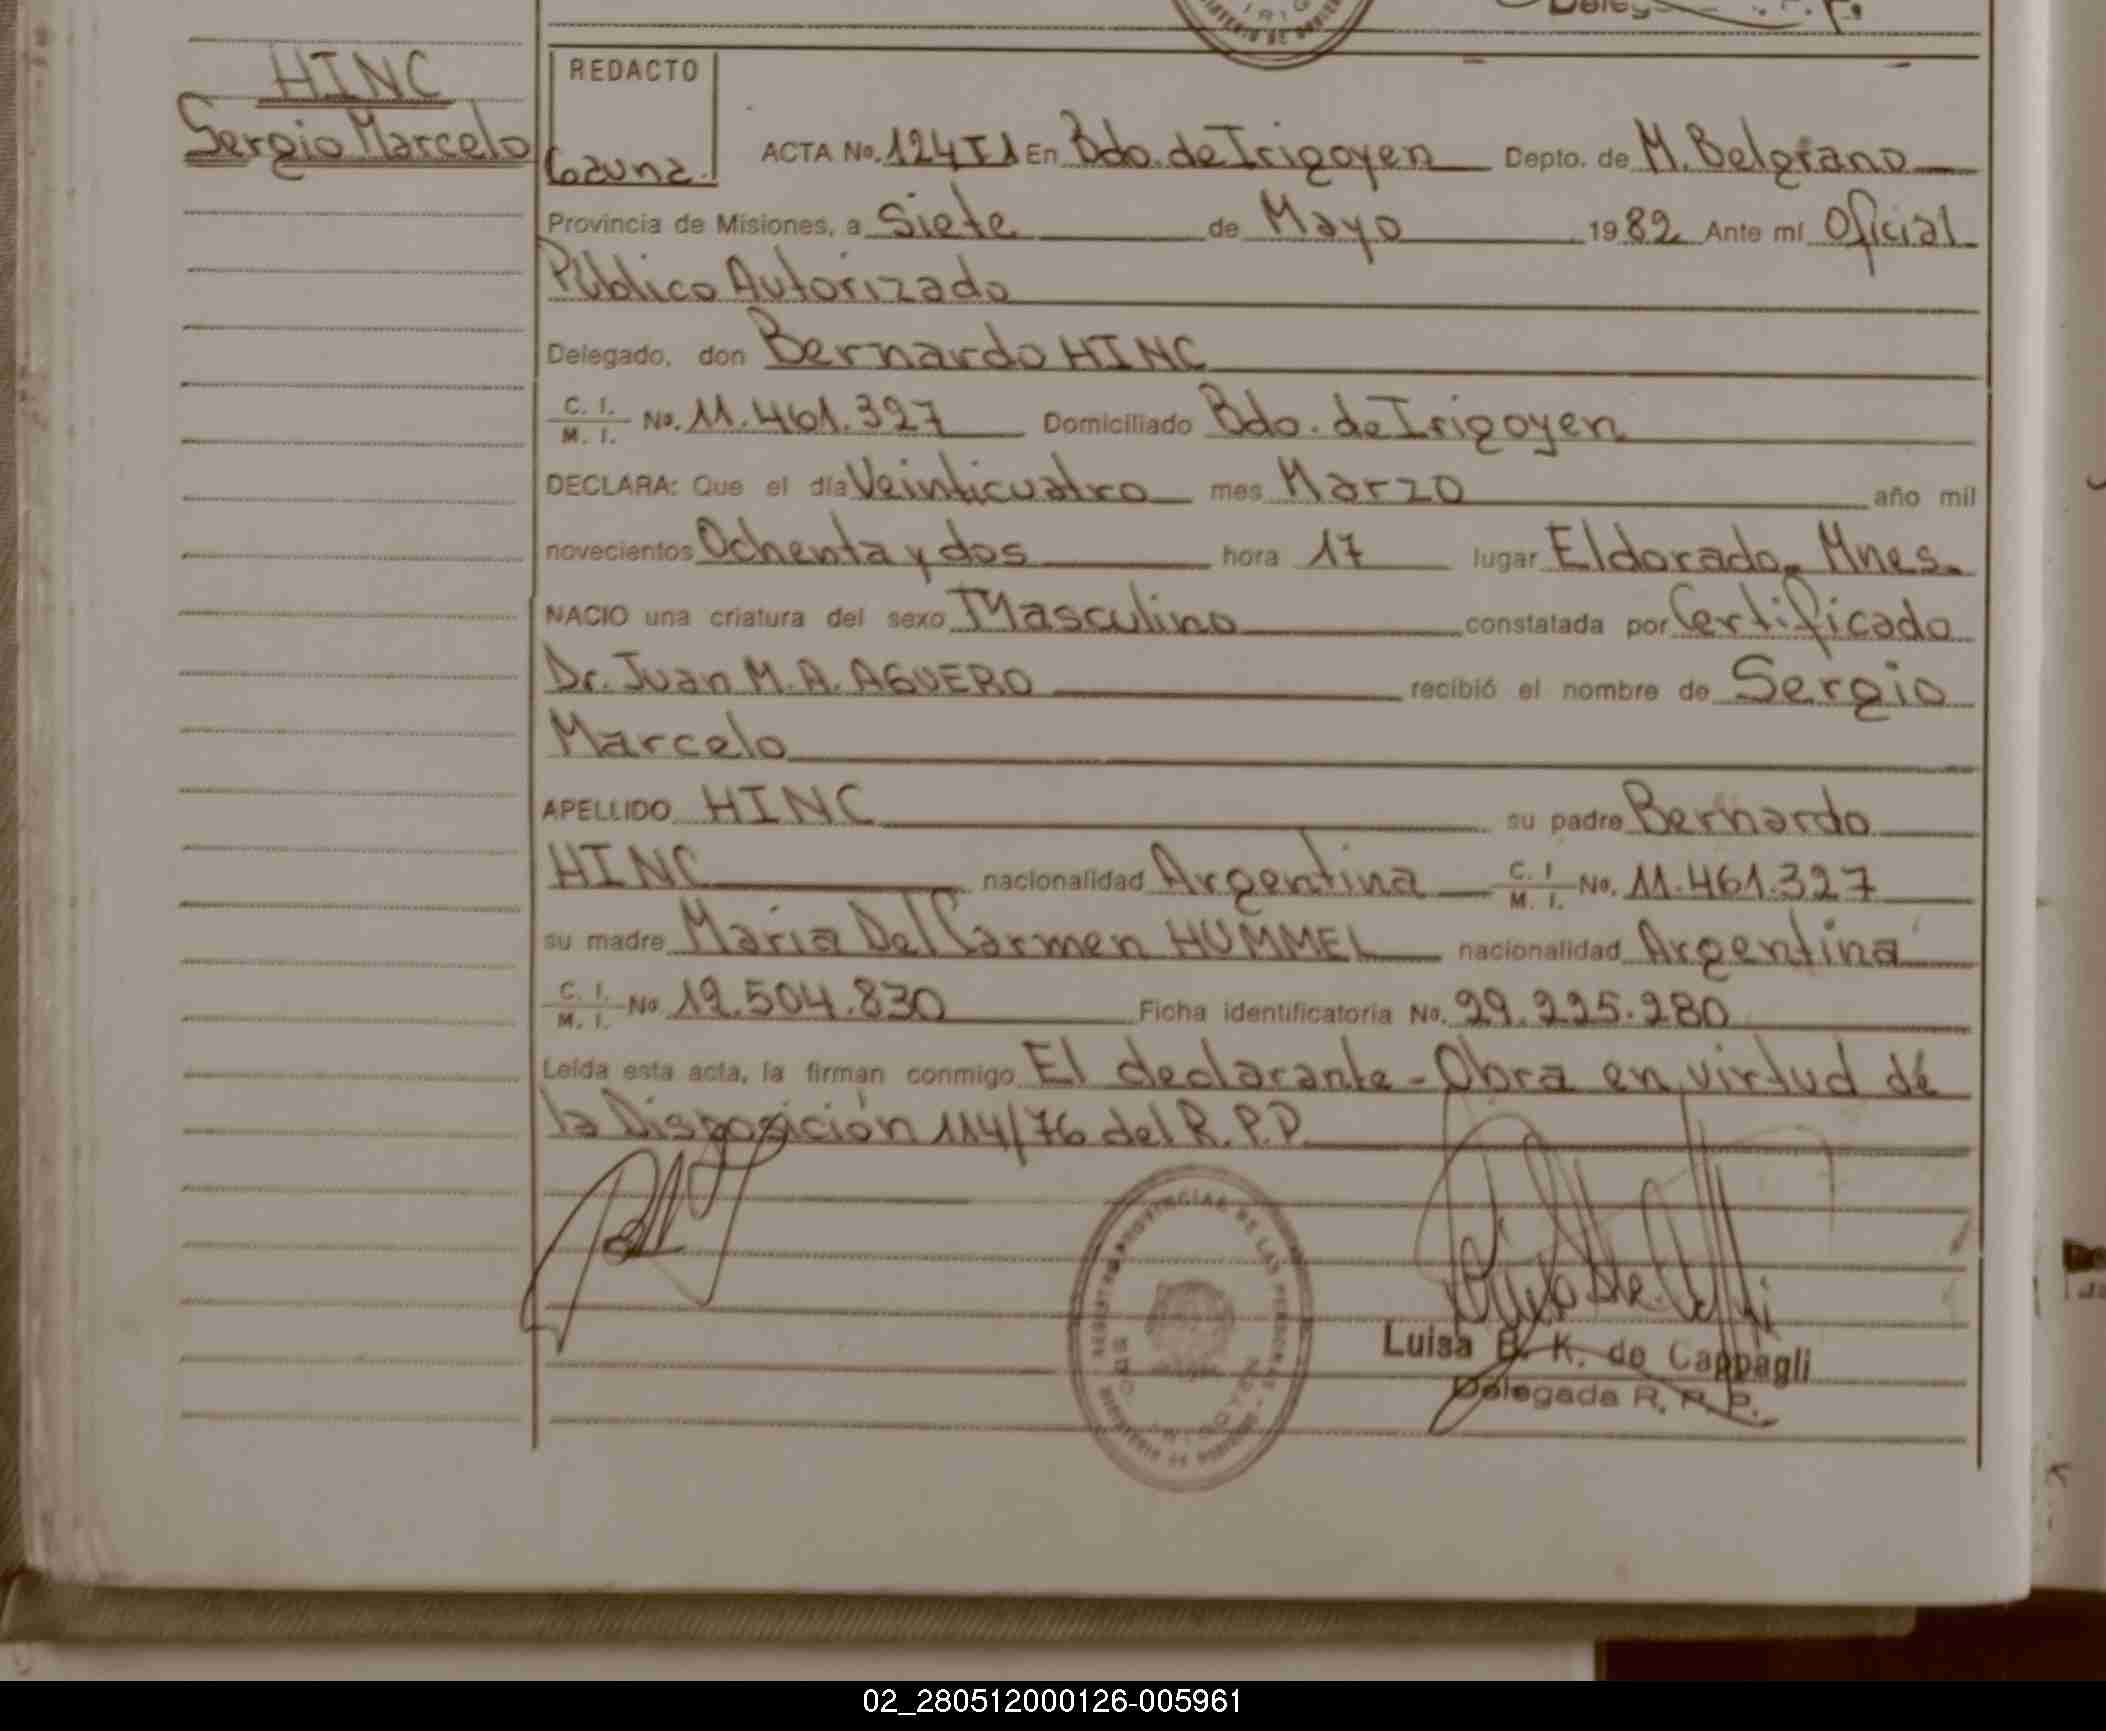 HINC
Sergio Marcelo
REDACTO
ACTA No. 124 T1 En Bdo. de Irigoyen Depto. de M. Belgrano
Provincia de Misiones, a Siete de Mayo 1982 Ante mí Oficial
Público Autorizado
Delegado, don Bernardo HINC
C. I. M. I. No. 11.461.327 Domiciliado Bdo. de Irigoyen
DECLARA: Que el día Veinticuatro mes Marzo año mil
novecientos Ochenta y dos hora 17 lugar Eldorado. Mnes.
NACIO una criatura del sexo Masculino constatada por Certificado
Dr. Juan M. A. AGUERO recibió el nombre de Sergio
Marcelo
APELLIDO HINC su padre Bernardo
HINC nacionalidad Argentina C. I M. I. No. 11.461.327
su madre Maria Del Carmen HUMMEL nacionalidad Argentina
C. I. M. I. No 12.504.830 Ficha identificatoria No. 29.225.280
Leída esta acta, la firman conmigo El declarante - Obra en virtud de
la Disposición 114/76 del R.P.P.
Luisa B. K. de Cappagli
Delegada R. P. P.
02_280512000126-005961